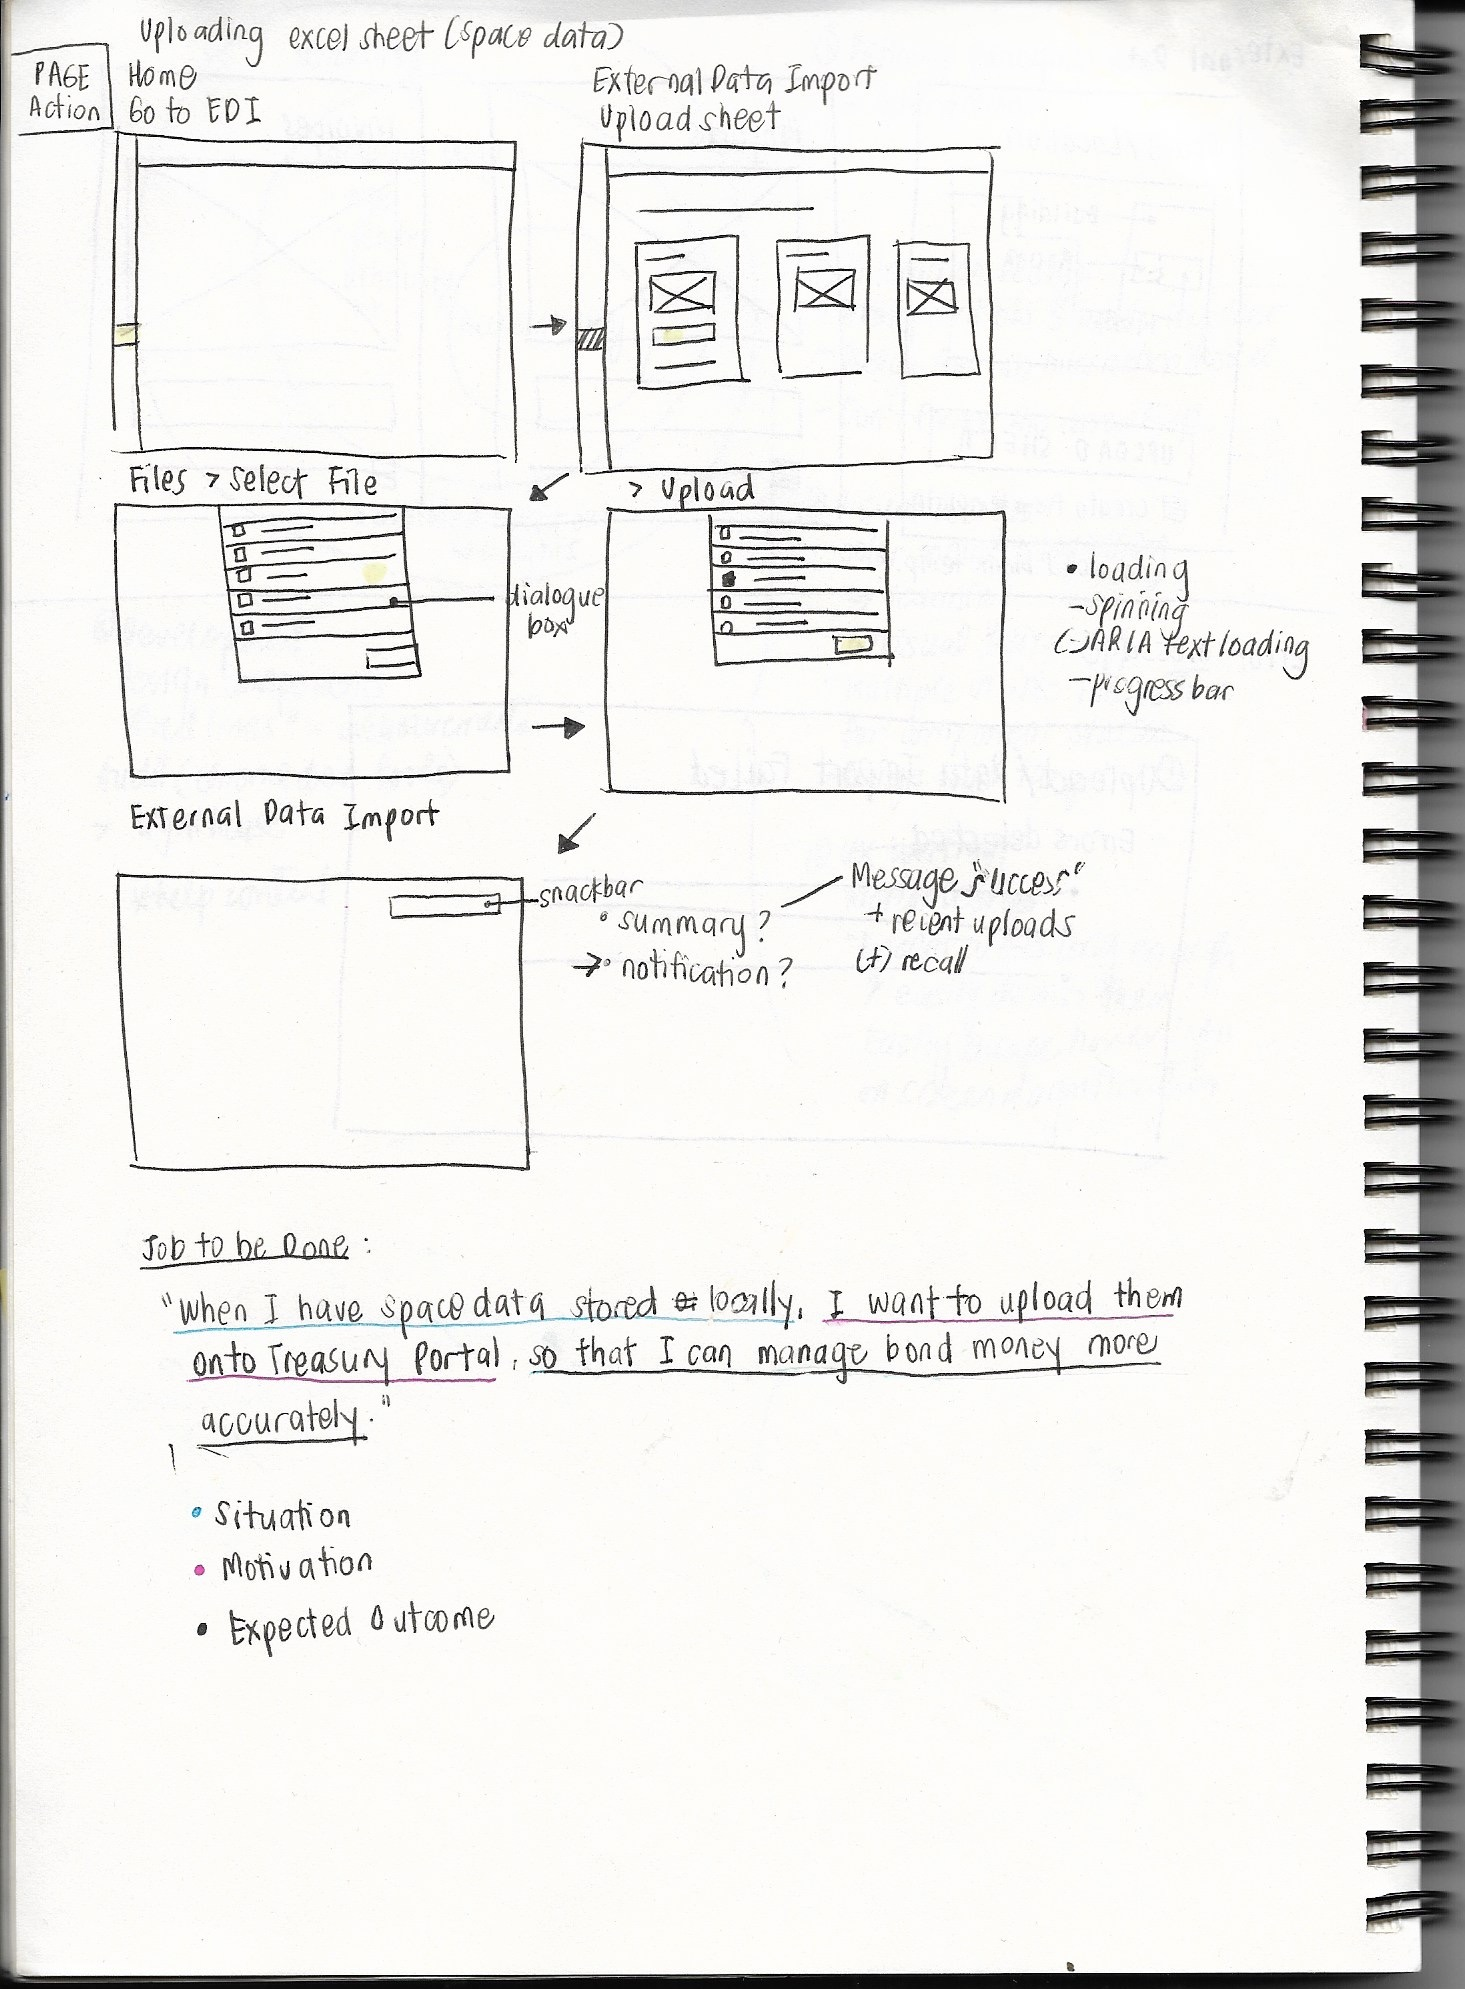 Uploading excel sheet (space data)
PAGE
Action
Home
Go to EDI
External Data Import
Upload sheet
Files > Select File
> Upload
dialogue
box
• loading
- spinning
(-) ARIA text loading
- progress bar
External Data Import
snackbar
• summary?
→• notification?
Message "success"
+ recent uploads
(+) recall
Job to be Done:
"When I have space data stored locally, I want to upload them
onto Treasury Portal, so that I can manage bond money more
accurately."
• Situation
• Motivation
• Expected Outcome